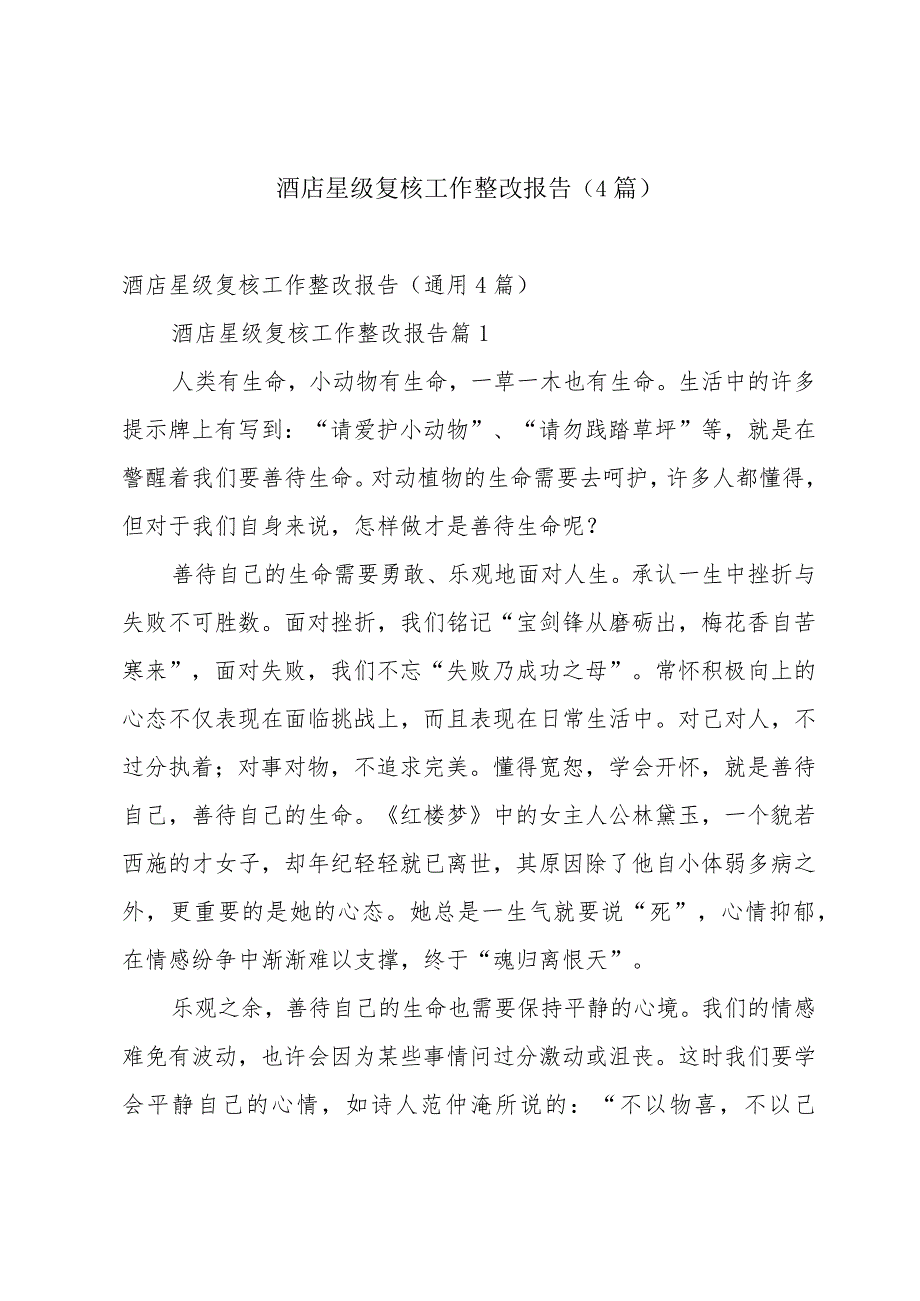 酒店星级复核工作整改报告（4篇）
酒店星级复核工作整改报告（通用4篇）
酒店星级复核工作整改报告篇1
人类有生命，小动物有生命，一草一木也有生命。生活中的许多
提示牌上有写到：“请爱护小动物”、“请勿践踏草坪”等，就是在
警醒着我们要善待生命。对动植物的生命需要去呵护，许多人都懂得，
但对于我们自身来说，怎样做才是善待生命呢？
善待自己的生命需要勇敢、乐观地面对人生。承认一生中挫折与
失败不可胜数。面对挫折，我们铭记“宝剑锋从磨砺出，梅花香自苦
寒来”，面对失败，我们不忘“失败乃成功之母”。常怀积极向上的
心态不仅表现在面临挑战上，而且表现在日常生活中。对己对人，不
过分执着；对事对物，不追求完美。懂得宽恕，学会开怀，就是善待
自己，善待自己的生命。《红楼梦》中的女主人公林黛玉，一个貌若
西施的才女子，却年纪轻轻就已离世，其原因除了他自小体弱多病之
外，更重要的是她的心态。她总是一生气就要说“死”，心情抑郁，
在情感纷争中渐渐难以支撑，终于“魂归离恨天”。
乐观之余，善待自己的生命也需要保持平静的心境。我们的情感
难免有波动，也许会因为某些事情问过分激动或沮丧。这时我们要学
会平静自己的心情，如诗人范仲淹所说的：“不以物喜，不以己